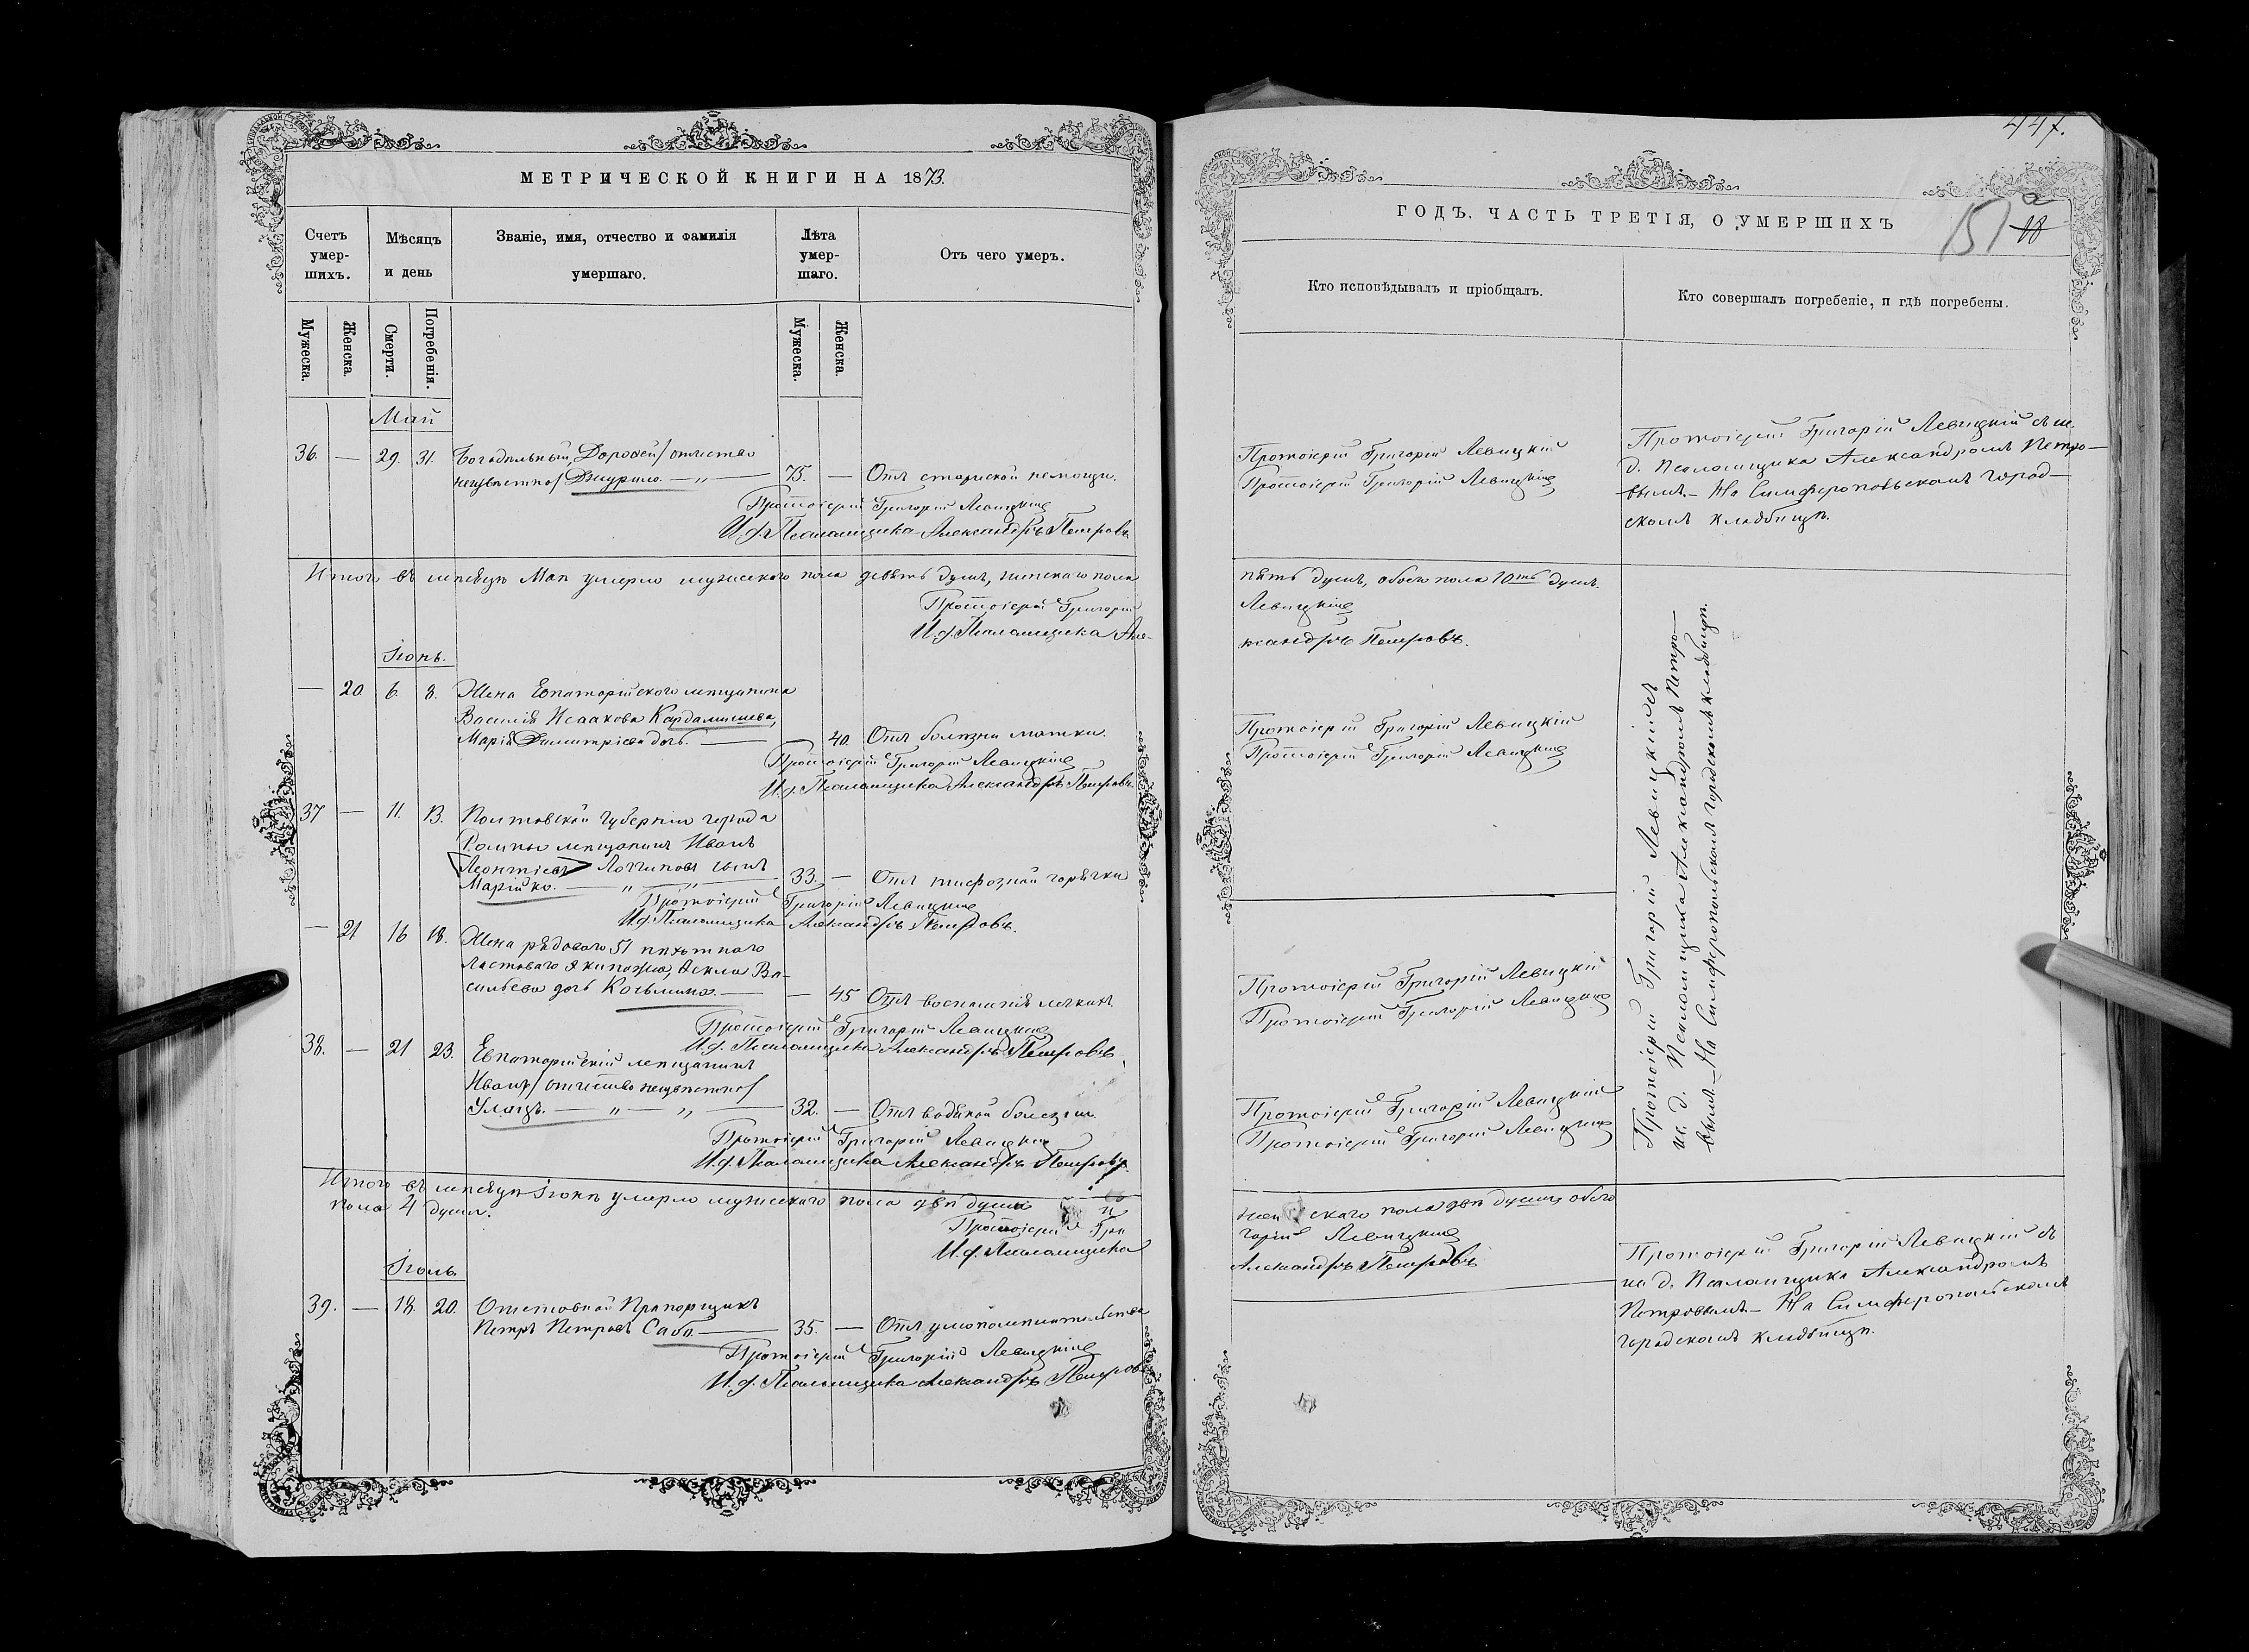 МЕТРИЧЕСКОЙ КНИГИ НА 1873.
Счетъ умер-шихъ.
Мѣсяцъ и день
Званіе, имя, отчество и фамилія умершаго.
Лѣта умер-шаго.
Отъ чего умеръ.
Мужеска.
Женска.
Смерти.
Погребенія.
Мужеска.
Женска.
Май
36. — 29. 31. Богадѣльный, Дорофей / отчество
неизвѣстно / — „ — 75. — Отъ старческой немощи.
Протоіерей Григорій Левицкій
И. д. Псаломщика Александръ Петровъ
Итого въ мѣсяцѣ Маѣ умерло мужескаго пола девять душъ, женскаго пола
Протоіерей Григорій
И. д. Псаломщика Але-
Іюнь.
— 20 6. 8. Жена Евпаторійскаго мѣщанина
Василія Исаакова Кардамышева,
Марія Димитріева дочь. — 40. Отъ болѣзни матки.
Протоіерей Григорій Левицкій
И. д. Псаломщика Александръ Петровъ
37 — 11. 13. Полтавской губерніи города
Ромны мѣщанинъ Иванъ
Леонтіевъ Логгиновъ сынъ
Марійко. — „ — „ — 33. — Отъ тифозной горячки
Протоіерей Григорій Левицкій
И. д. Псаломщика Александръ Петровъ.
— 21 16 18. Жена рядоваго 51 пѣхотнаго
ластоваго экипажа, Ѳекла Ва-
сильева дочь Козьмина. — — 45 Отъ воспаленія легкихъ.
Протоіерей Григорій Левицкій
И. д. Псаломщика Александръ Петровъ.
38. — 21 23. Евпаторійскій мѣщанинъ
Иванъ / отчество неизвѣстно /
— „ — „ — 32. — Отъ водяной болѣзни.
Протоіерей Григорій Левицкій
И. д. Псаломщика Александръ Петровъ.
Итого въ мѣсяцѣ Іюнѣ умерло мужескаго пола двѣ души
пола 4 души.
Протоіерей Гри
И. д. Псаломщика
Іюль.
39. — 18. 20. Отставной Прапорщикъ
Петръ Петровъ Саби. — 35. — Отъ умопомѣшательства
Протоіерей Григорій Левицкій
И. д. Псаломщика Александръ Петровъ
447.
151
ГОДЪ. ЧАСТЬ ТРЕТІЯ, О УМЕРШИХЪ
Кто исповѣдывалъ и пріобщалъ.
Кто совершалъ погребеніе, и гдѣ погребены.
Протоіерей Григорій Левицкій
Протоіерей Григорій Левицкій
Протоіерей Григорій Левицкій съ и.
д. Псаломщика Александромъ Петро-
вымъ. — На Симферопольскомъ город-
скомъ кладбищѣ.
пять душъ, обоего пола душъ.
Левицкій
ксандръ Петровъ.
Протоіерей Григорій Левицкій
Протоіерей Григорій Левицкій
Протоіерей Григорій Левицкій
Протоіерей Григорій Левицкій
Протоіерей Григорій Левицкій
Протоіерей Григорій Левицкій
Протоіерей Григорій Левицкій съ
и. д. Псаломщика Александромъ Петро-
вымъ. — На Симферопольскомъ городскомъ кладбищѣ.
женскаго пола двѣ души, обего
горій Левицкій
Александръ Петровъ
Протоіерей Григорій Левицкій съ
и. д. Псаломщика Александромъ
Петровымъ. — На Симферопольскомъ
городскомъ кладбищѣ.